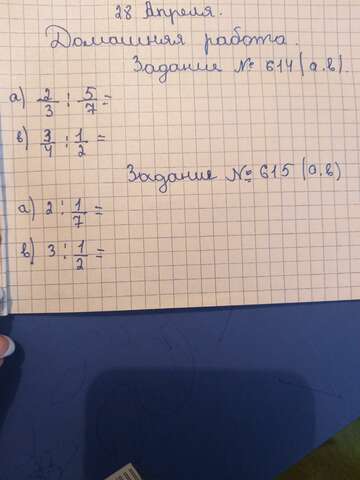 28 Апреля.
Домашняя работа.
Задание № 614 (а.в).
а) 2/3 : 5/7 =
в) 3/4 : 1/2 =
Задание № 615 (а.в)
а) 2 : 1/7 =
в) 3 : 1/2 =